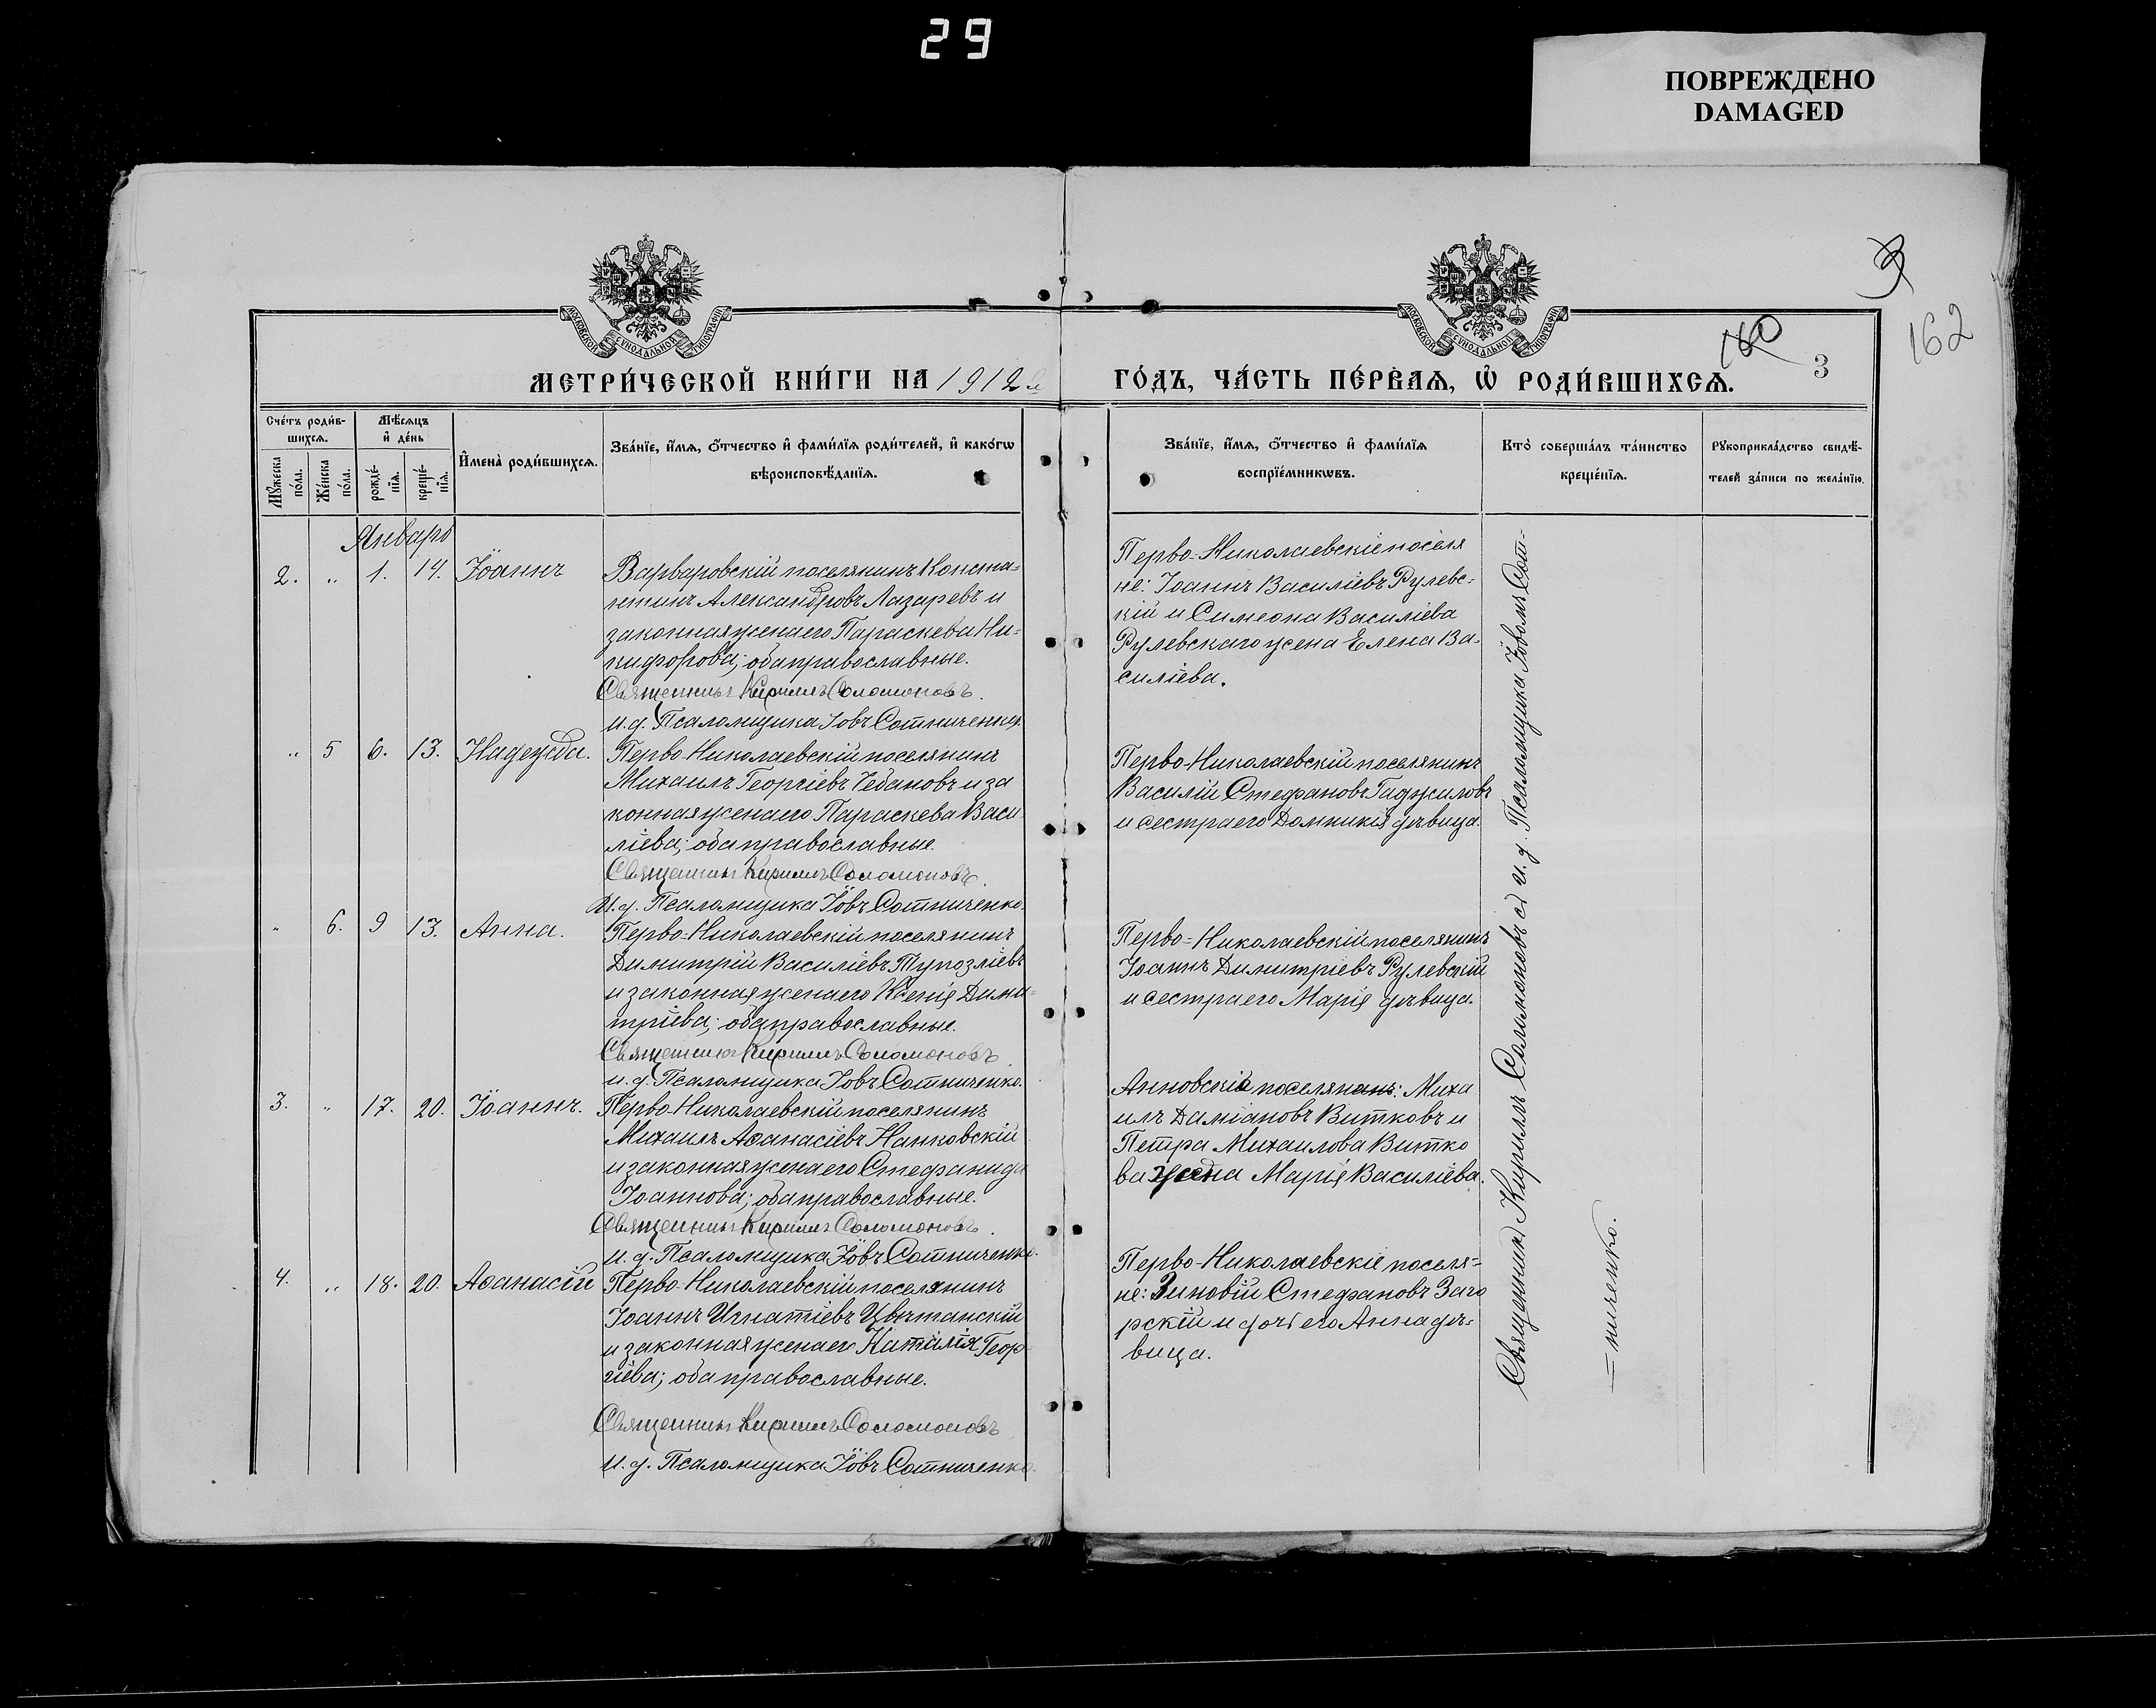 29
ПОВРЕЖДЕНО
DAMAGED
3
162
160
3
МОСКОВСКОЙ СѴНОДАЛЬНОЙ ТИПОГРАФІИ
МОСКОВСКОЙ СѴНОДАЛЬНОЙ ТИПОГРАФІИ
МЕТРИ́ЧЕСКОЙ КНИ́ГИ НА 1912
ГО́ДЪ, ЧА́СТЬ ПЕ́РВАѦ, Ѡ҆ РОДИ́ВШИХСѦ.
Сче́тъ роди́в-
шихсѧ.
Мꙋ́жеска по́ла.
Же́нска по́ла.
Мѣ́сѧцъ
и҆ де́нь
рожде́-нїѧ.
креще́-нїѧ.
И҆мена̀ роди́вшихсѧ.
Зва́нїе, и҆́мѧ, ѻ҆́тчество и҆ фами́лїѧ роди́телей, и҆ како́гѡ
вѣроисповѣ́данїѧ.
Зва́нїе, и҆́мѧ, ѻ҆́тчество и҆ фами́лїѧ
воспрїе́мникѡвъ.
Кто̀ соверша́лъ та́инство
креще́нїѧ.
Рꙋкоприкла́дство свидѣ́-
телей за́писи по жела́нїю.
Январь
2. „ 1. 14. Іоаннъ
Варваровскій поселянинъ Конста=
нтинъ Александровъ Лазаревъ и
законная жена его Параскева Ни=
кифорова; оба православные.
Священникъ Кириллъ Соломоновъ.
и. д. Псаломщика Іовъ Сотниченко.
Перво-Николаевскіе поселя
не: Іоаннъ Василіевъ Рулевс=
кій и Симеона Василіева
Рулевскаго жена Елена Ва-
силіева.
„ 5 6. 13. Надежда.
Перво-Николаевскій поселянинъ
Михаилъ Георгіевъ Чебановъ и за
конная жена его Параскева Васи
ліева; оба православные.
Священникъ Кириллъ Соломоновъ.
И. д. Псаломщика Іовъ Сотниченко.
Перво-Николаевскій поселянинъ
Василій Стефановъ Гаджиловъ
и сестра его Домникія дѣвица.
„ 6. 9 13. Анна.
Перво-Николаевскій поселянинъ
Димитрій Василіевъ Тупозліевъ
и законная жена его Ксенія Дими=
тріева; оба православные.
Священникъ Кириллъ Соломоновъ.
и. д. Псаломщика Іовъ Сотниченко.
Перво=Николаевскій поселянинъ
Іоаннъ Димитріевъ Рулевскій
и сестра его Марія дѣвица.
3. „ 17. 20. Іоаннъ.
Перво-Николаевскій поселянинъ
Михаилъ Аѳанасіевъ Нанковскій
и законная жена его Стефанида
Іоаннова; оба православные.
Священникъ Кириллъ Соломоновъ.
и. д. Псаломщика Іовъ Сотниченко.
Миха
илъ Даміановъ Витковъ и
Петра Михаилова Витко
ва жена Марія Василіева.
4. „ 18. 20. Аѳанасій
Перво-Николаевскій поселянинъ
Іоаннъ Игнатіевъ Цвѣтанскій
и законная жена его Наталія Геор
гіева; оба православные.
Священникъ Кириллъ Соломоновъ
и. д. Псаломщика Іовъ Сотниченко.
Перво-Николаевскіе поселя=
не: Зиновій Стефановъ Заго
рскій и дочь его Анна дѣ=
вица.
Священникъ Кириллъ Соломоновъ съ и. д. Псаломщика Іовомъ Сот-
=ниченко.